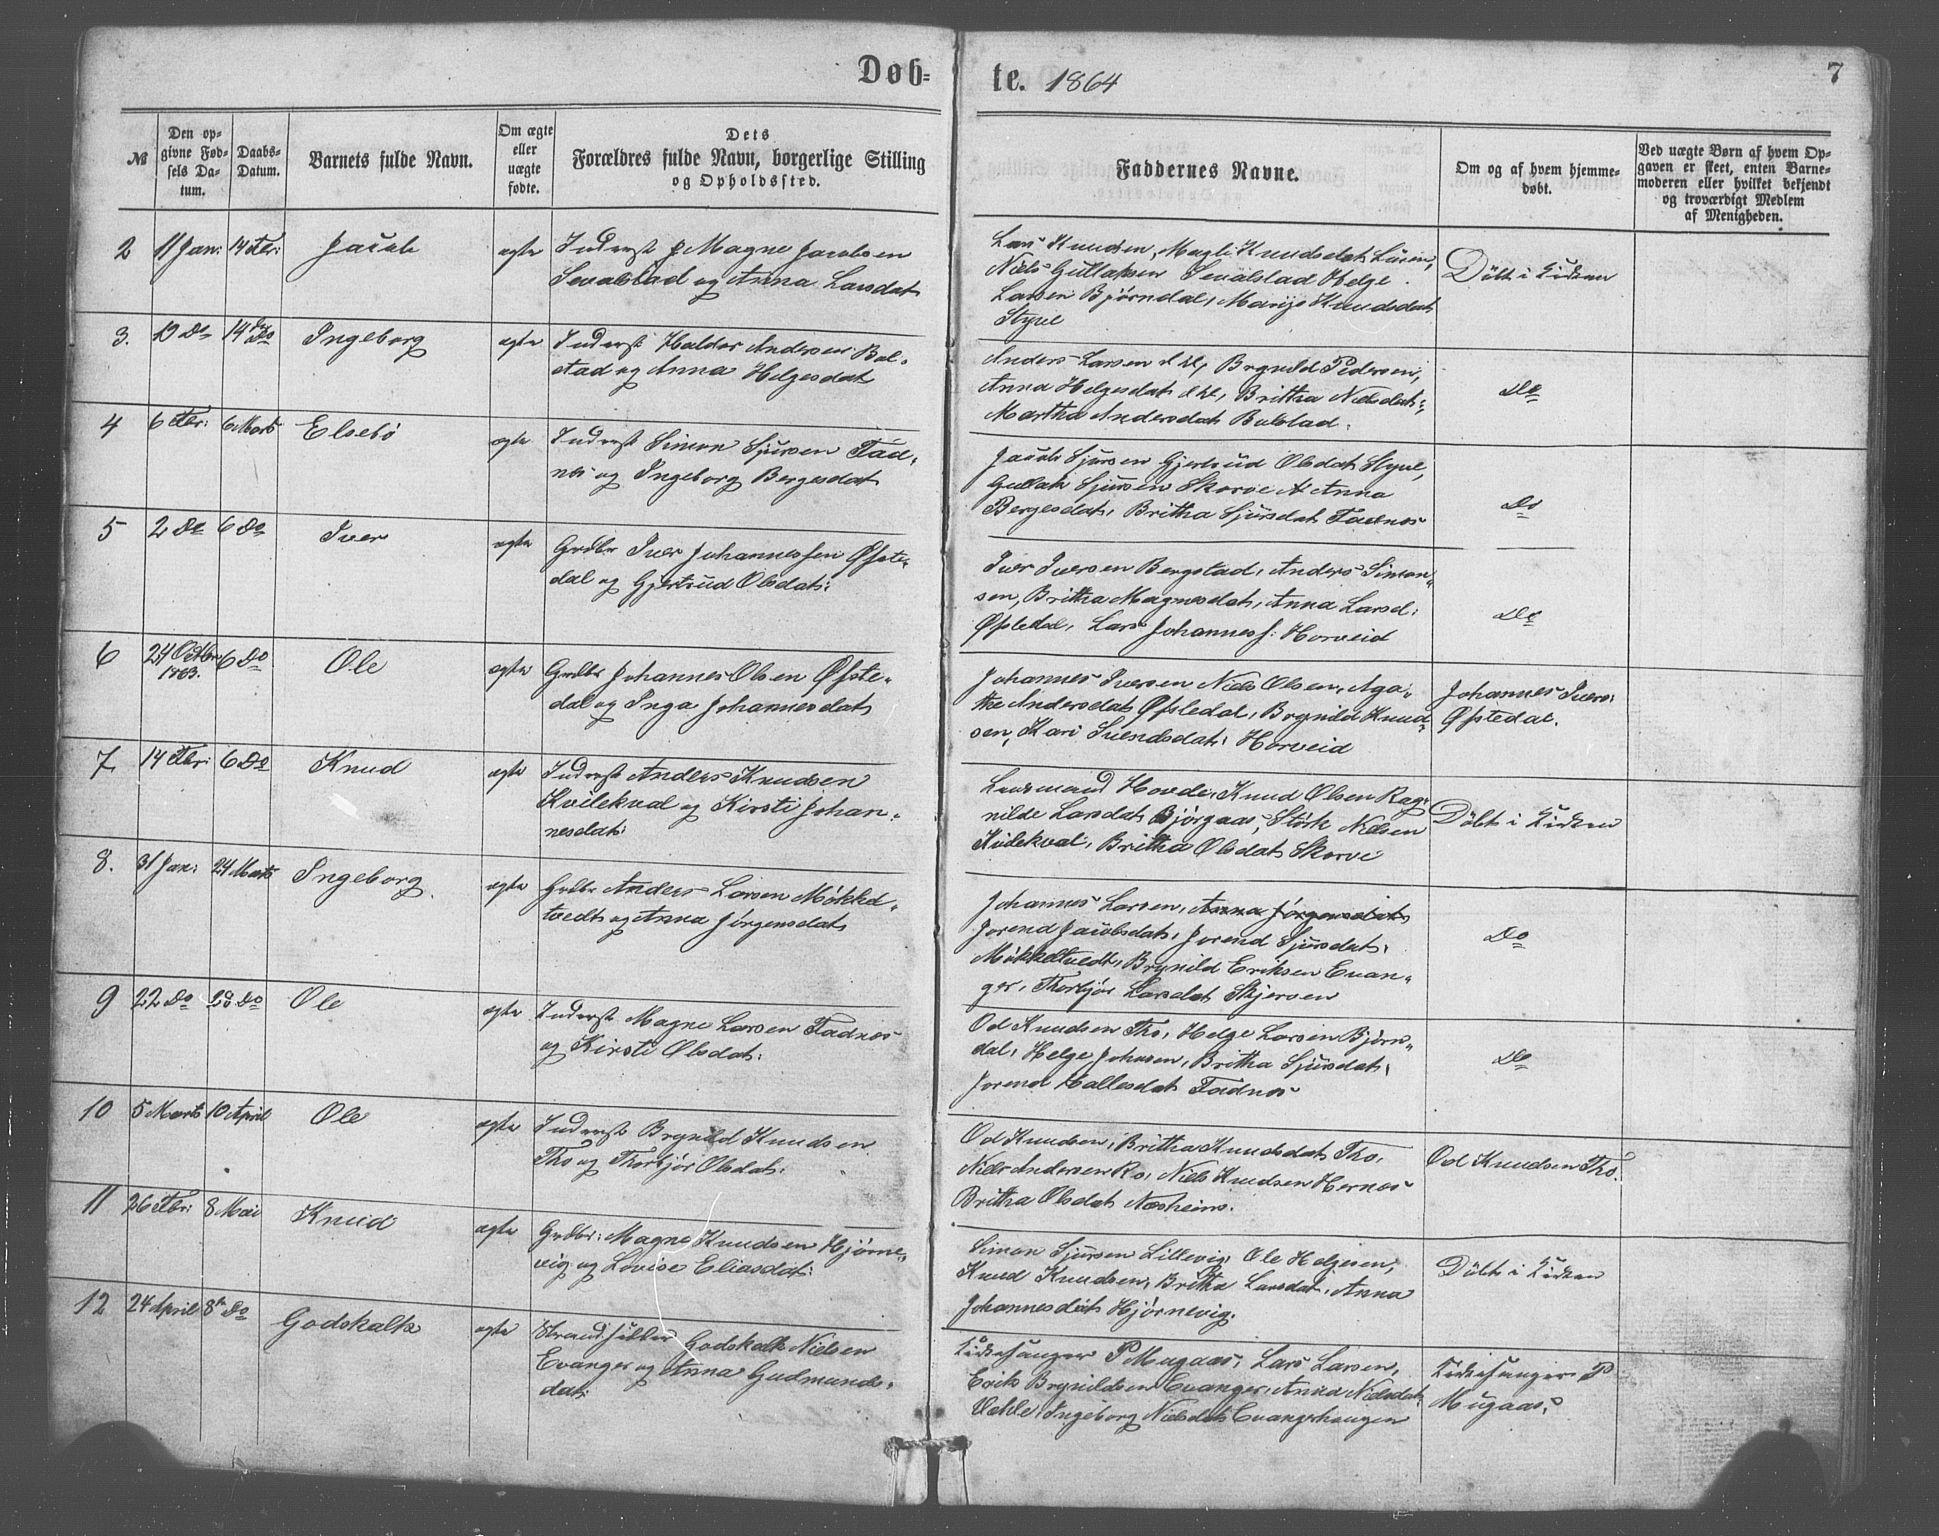 Døb=
te. 1864
7
№
Den op-
givne Fød-
sels Da-
tum.
Daabs-
Datum.
Barnets fulde Navn.
Om ægte
eller
uægte
fødte.
Dets
Forældres fulde Navn, borgerlige Stilling
og Opholdssted.
Faddernes Navne.
Om og af hvem hjemme-
døbt.
Ved uægte Børn af hvem Op-
gaven er skeet, enten Barne-
moderen eller hvilket bekjendt
og troværdigt Medlem
af Menigheden.
2 11 Jan: 14 Fbr: Jacob ægte Inderst Magne Jacobsen
Sevalstad og Anna Larsdat
Lars Knudsen, Magli Knudsdat
Niels Gullaksen Sevalstad Helge
Larsen Bjørndal, Marije Knudsdat
Styve
Døbt i Kirken
3. 13 Do 14 Do Ingeborg ægte Inderst Haldor Andersen Bol-
stad og Anna Helgesdat
Anders Larsen Brynild Pedersen,
Anna Helgesdat Brittha Nielsdat:
Martha Andersdat Bolstad.
Do
4 6 Fbr: 6 Marts Elsebø ægte Inderst Simon Sjursen Fad-
nes og Ingeborg Bergesdat
Jacob Sjursen Gjertrud Olsdat Styve,
Gullak Sjursen Skorve Anna
Bergesdat, Brittha Sjursdat Fadnes
Do
5 2 Do 6 Do Iver ægte Grdbr Iver Johannessen Øfste-
dal og Gjertrud Olsdat:
Iver Iversen Bergstad, Anders Simon-
sen, Brittha Magnesdat, Anna Larsd:
Øfstedal, Lars Johanness: Horveid
Do
6 24 Octbr 1863. 6 Do Ole ægte Grdbr Johannes Olsen Øfste-
dal og Inga Johannesdat
Johannes Iversen Niels Olsen, Aga-
the Andersdat Øfstedal, Brynild Knud-
sen, Kari Svendsdat: Horveid
Johannes Ivers:
Øfstedal.
7 14 Fbr: 6 Do Knud ægte Inderst Anders Knudsen
Kvilekval og Kirsti Johan-
nesdat:
Lensmand Hovde, Knud Olsen Rag-
nilde Larsdat Bjørgaas, Størk Nielsen
Kvilekval, Brittha Olsdat Skorve
Døbt i Kirken
8. 31 Jan: 24 Marts Ingeborg ægte Grdbr Anders Larsen Møkkel-
tvedt og Anna Jørgensdat
Johannes Larsen, Anna Jørgensdat
Jorend Jacobsdat, Jorend Sjursdat,
Møkkeltvedt, Brynild Eriksen Evan-
ger, Thorbjør Larsdat Skjersen
Do
9 22 Do 28 Do Ole ægte Inderst Magne Larsen Fadnes
og Kirsti Olsdat:
Od Knudsen Tho, Helge Larsen Bjørn-
dal, Helge Johnsen, Brittha Sjursdat,
Jorend Hallesdat Fadnes
Do
10 5 Marts 10 April Ole ægte Inderst Brynild Knudsen
Tho og Thorbjør Olsdat:
Od Knudsen, Brittha Knudsdat Tho,
Niels Andersen Ro, Niels Knudsen Hernes
Brittha Olsdat Næsheim.
Od Knudsen Tho.
11 26 Fbr: 8 Mai Knud ægte Grdbr: Magne Knudsen Hjørne-
vig og Lovise Eliasdat:
Simon Sjursen Lillevig, Ole Helgesen,
Knud Knudsen, Brittha Larsdat, Anna
Johannesdat Hjørnevig.
Døbt i Kirken
12 24 April 8 Do Godskalk ægte Strandsidder Godskalk Nielsen
Evanger og Anna Gudmunds-
dat:
Kirkesanger P Mugaas, Lars Larsen,
Erik Brynildsen Evanger, Anna Nielsdat
Væhle, Ingeborg Nielsdat Evangerhaugen
Kirkesanger P
Mugaas.